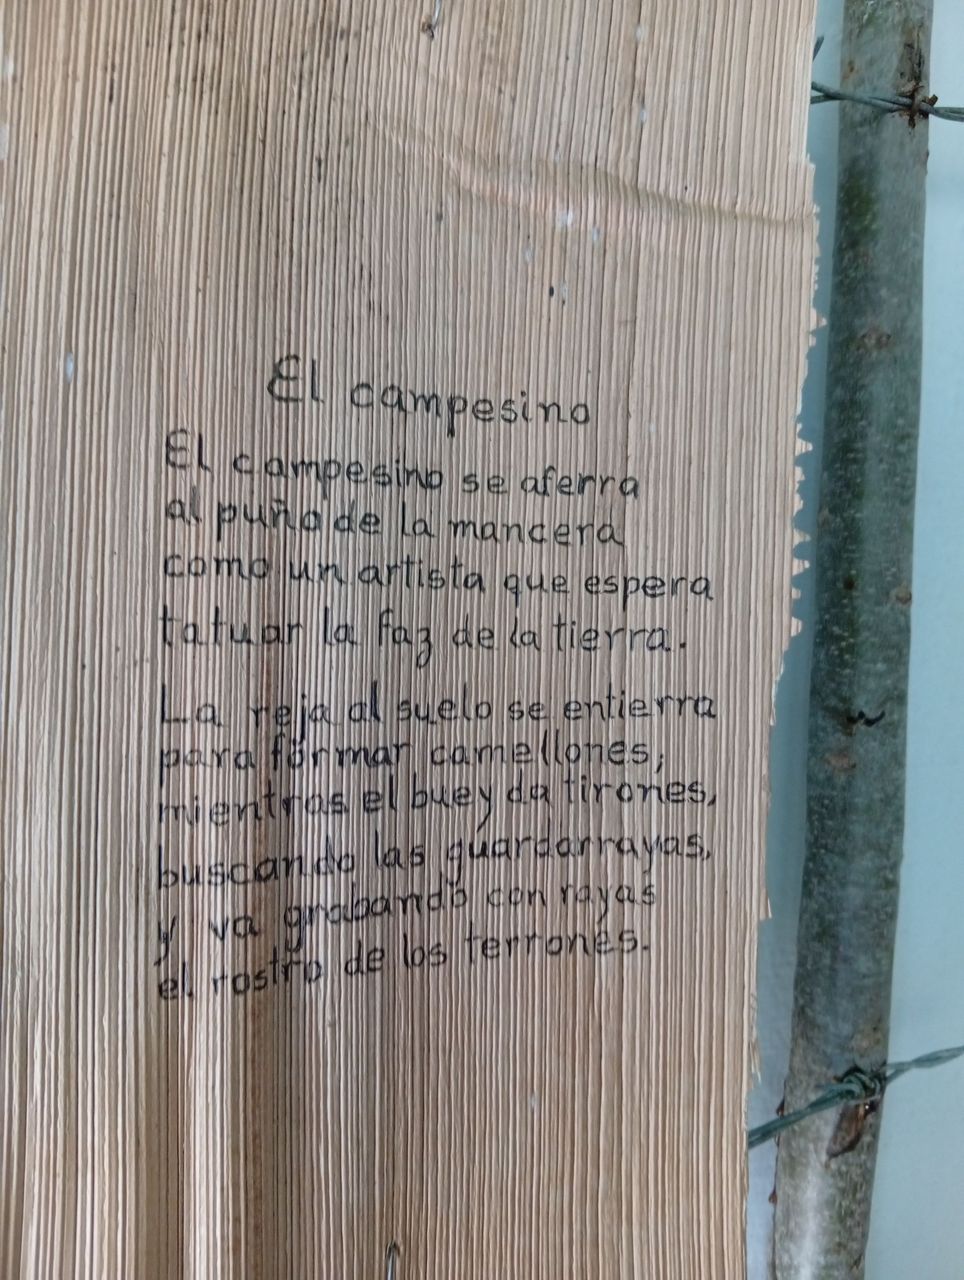 El campesino
El campesino se aferra
al puño de la mancera
como un artista que espera
tatuar la faz de la tierra.
La reja al suelo se entierra
para formar camellones,
mientras el buey da tirones,
buscando las guardarrayas,
y va grabando con rayas
el rostro de los terrones.